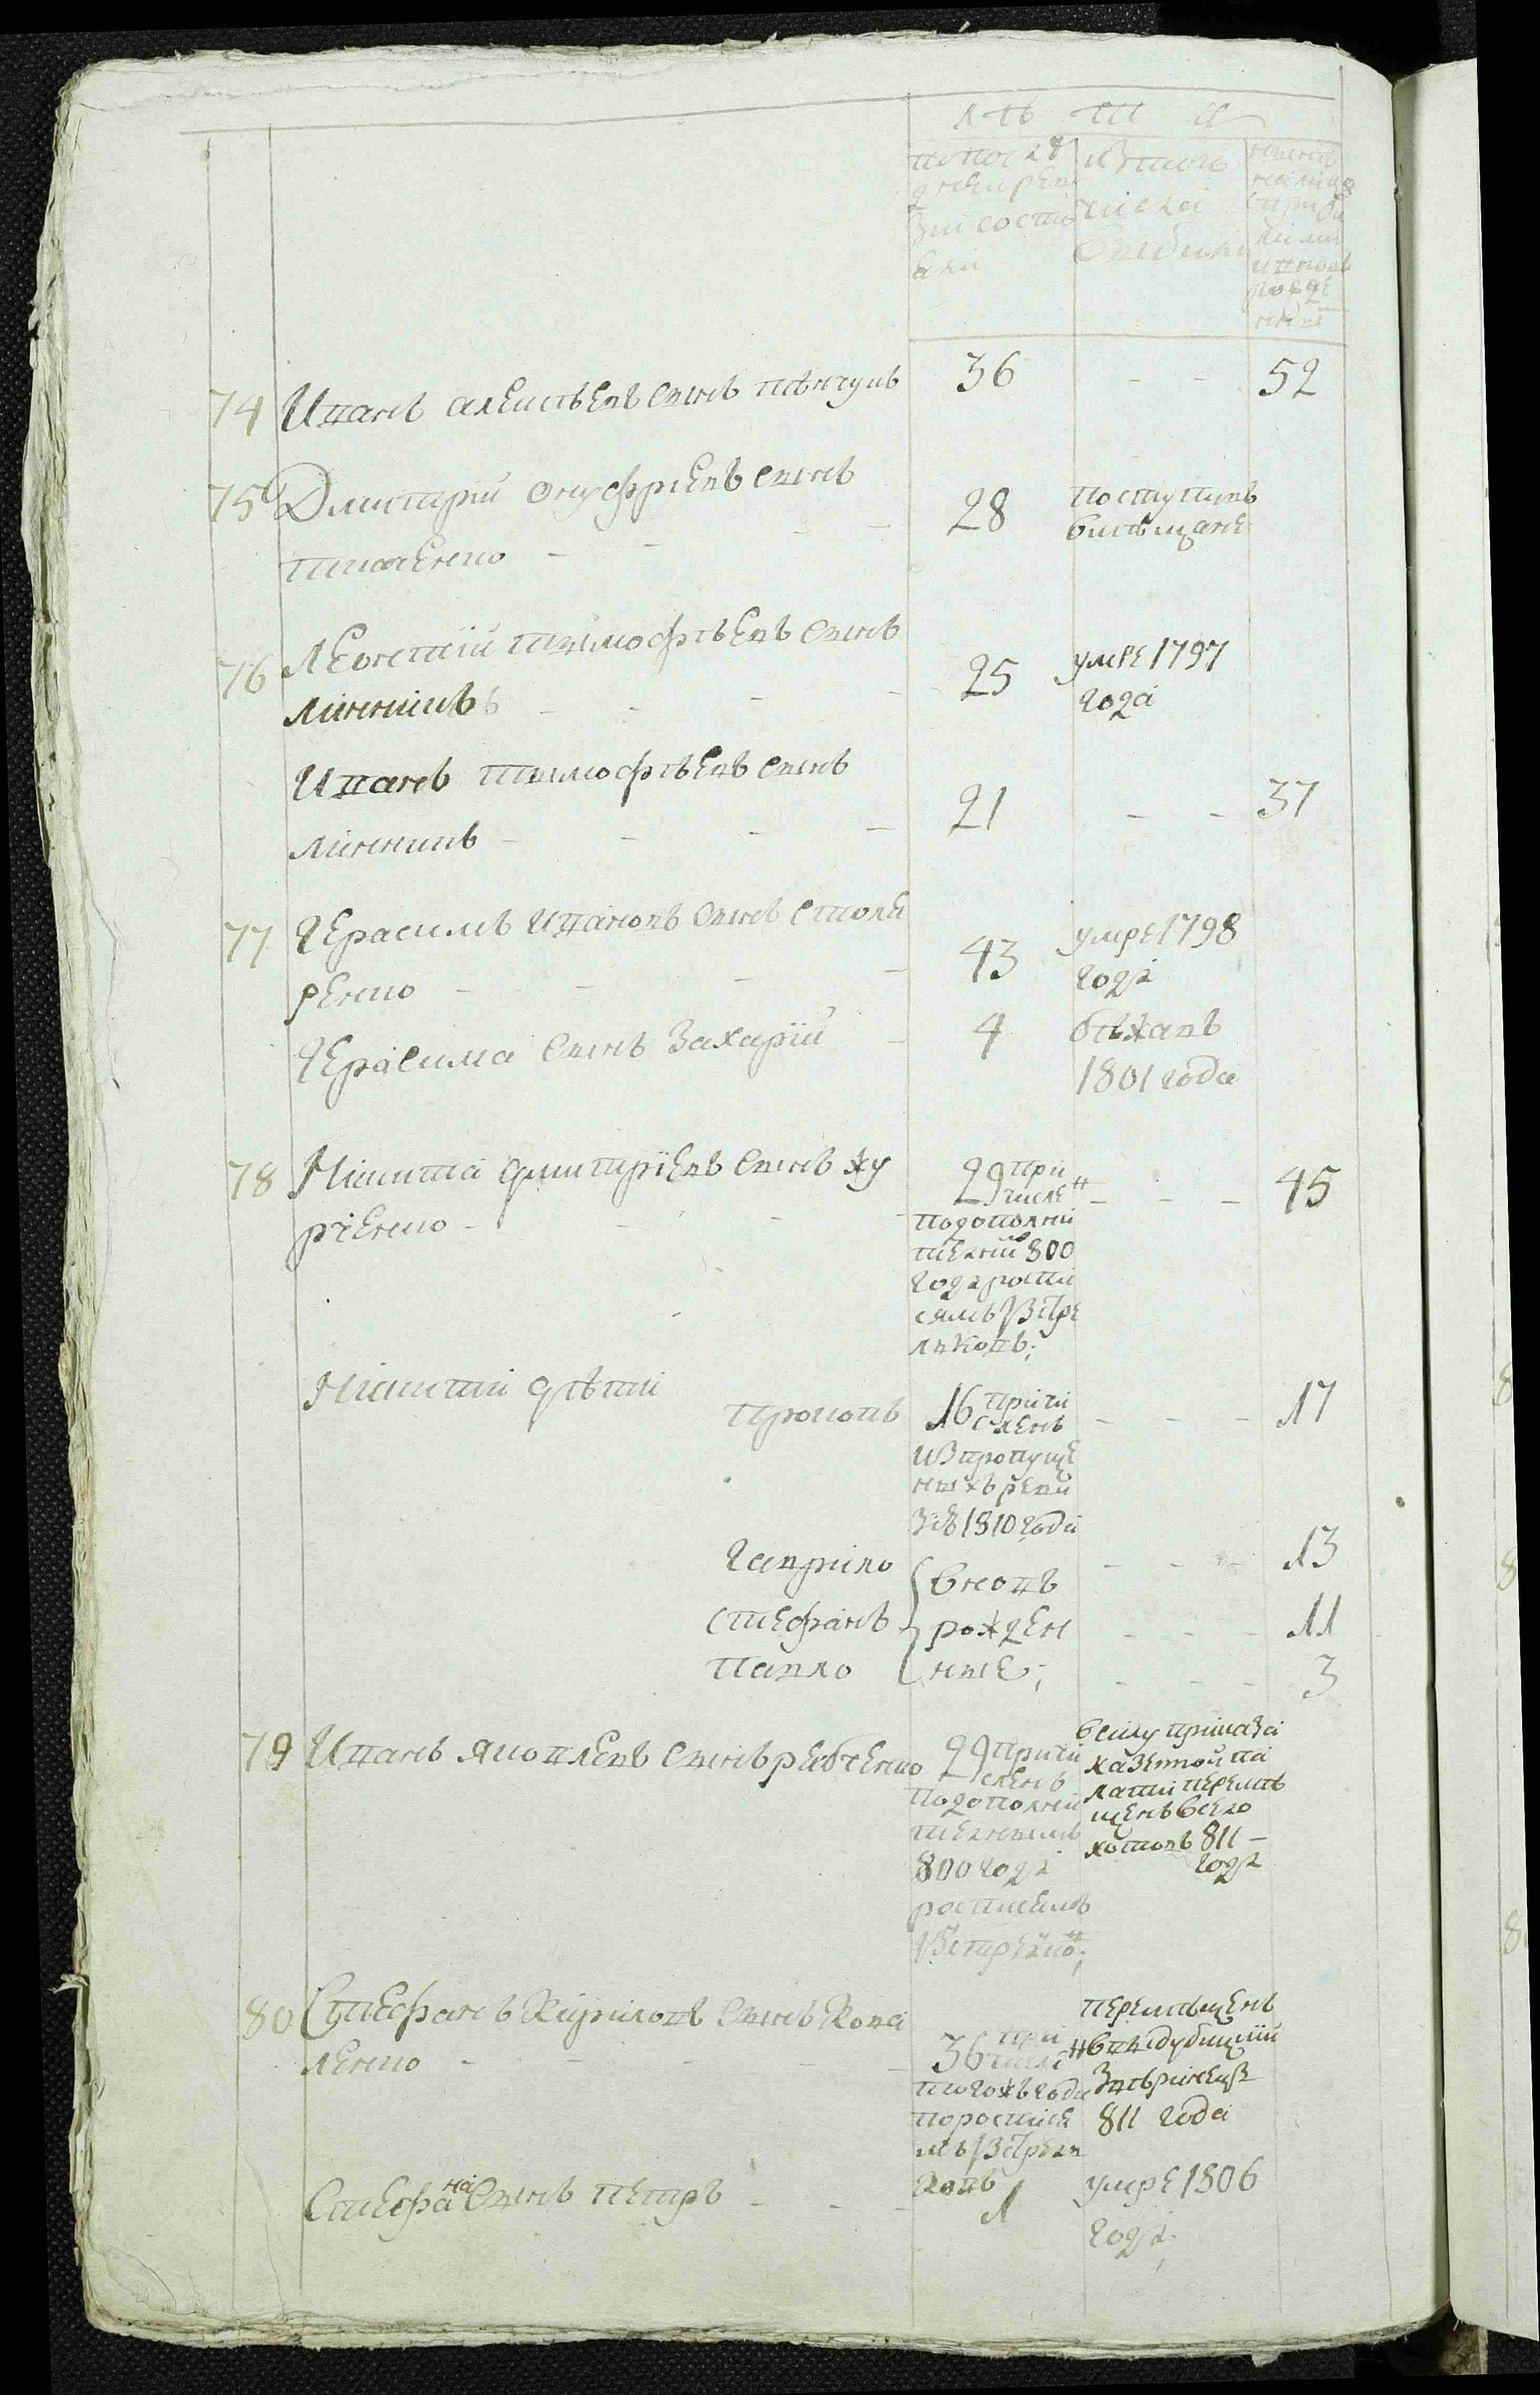 лѣ та
попос лѣ
дней реви
зии состо
яли
изтого
числа
выбыло
ныне на
лицо
74 Иванъ алексѣевъ сынъ
36 - - 52
75 Дмитрий онуфриевъ сынъ
28 поступивъ
вмѣщане
76 Леонтий тимофѣевъ сынъ
линникъ - - - -
25 умре 1797
года
Иванъ тимофѣевъ сынъ
линникъ - - - -
21 - - 37
77 Герасимъ ивановъ сынъ столя
ренко - - - -
43 умре 1798
года
Герасима сынъ Захарий - 4 бѣжавъ
1801 года
78 Никита дмитриевъ сынъ ху
рченко - - - -
29 при
числен
подополни
телний 800
года роспи
сямъ изстре
лковъ;
- - - 45
Никити дѣти
прокопъ 16 причи
сленъ
изпропуще
ныхъ реви
зиѣ 1810 года
- - - 17
гаврило
стефанъ
павло
вновъ
рожден
ные;
- - - 13
- - - 11
- - - 3
79 Иванъ яковлевъ сынъ рябченко
29 причи
сленъ
подополни
телнымъ
800 года
росписямъ
изстрелко;
всилу приказа
казенной па
лати перемѣ
щенъ всело
хотовъ 811 -
года
80 Стефанъ Кириловъ сынъ Кова
ленко - - - -
36 при
числен
тогожъ года
поросписе
мъ изстрел
ковъ
перемѣщенъ
ввыдубицкий
Звѣринецъ
811 года
Стефана сынъ петръ - - - 1 умре 1806
года;